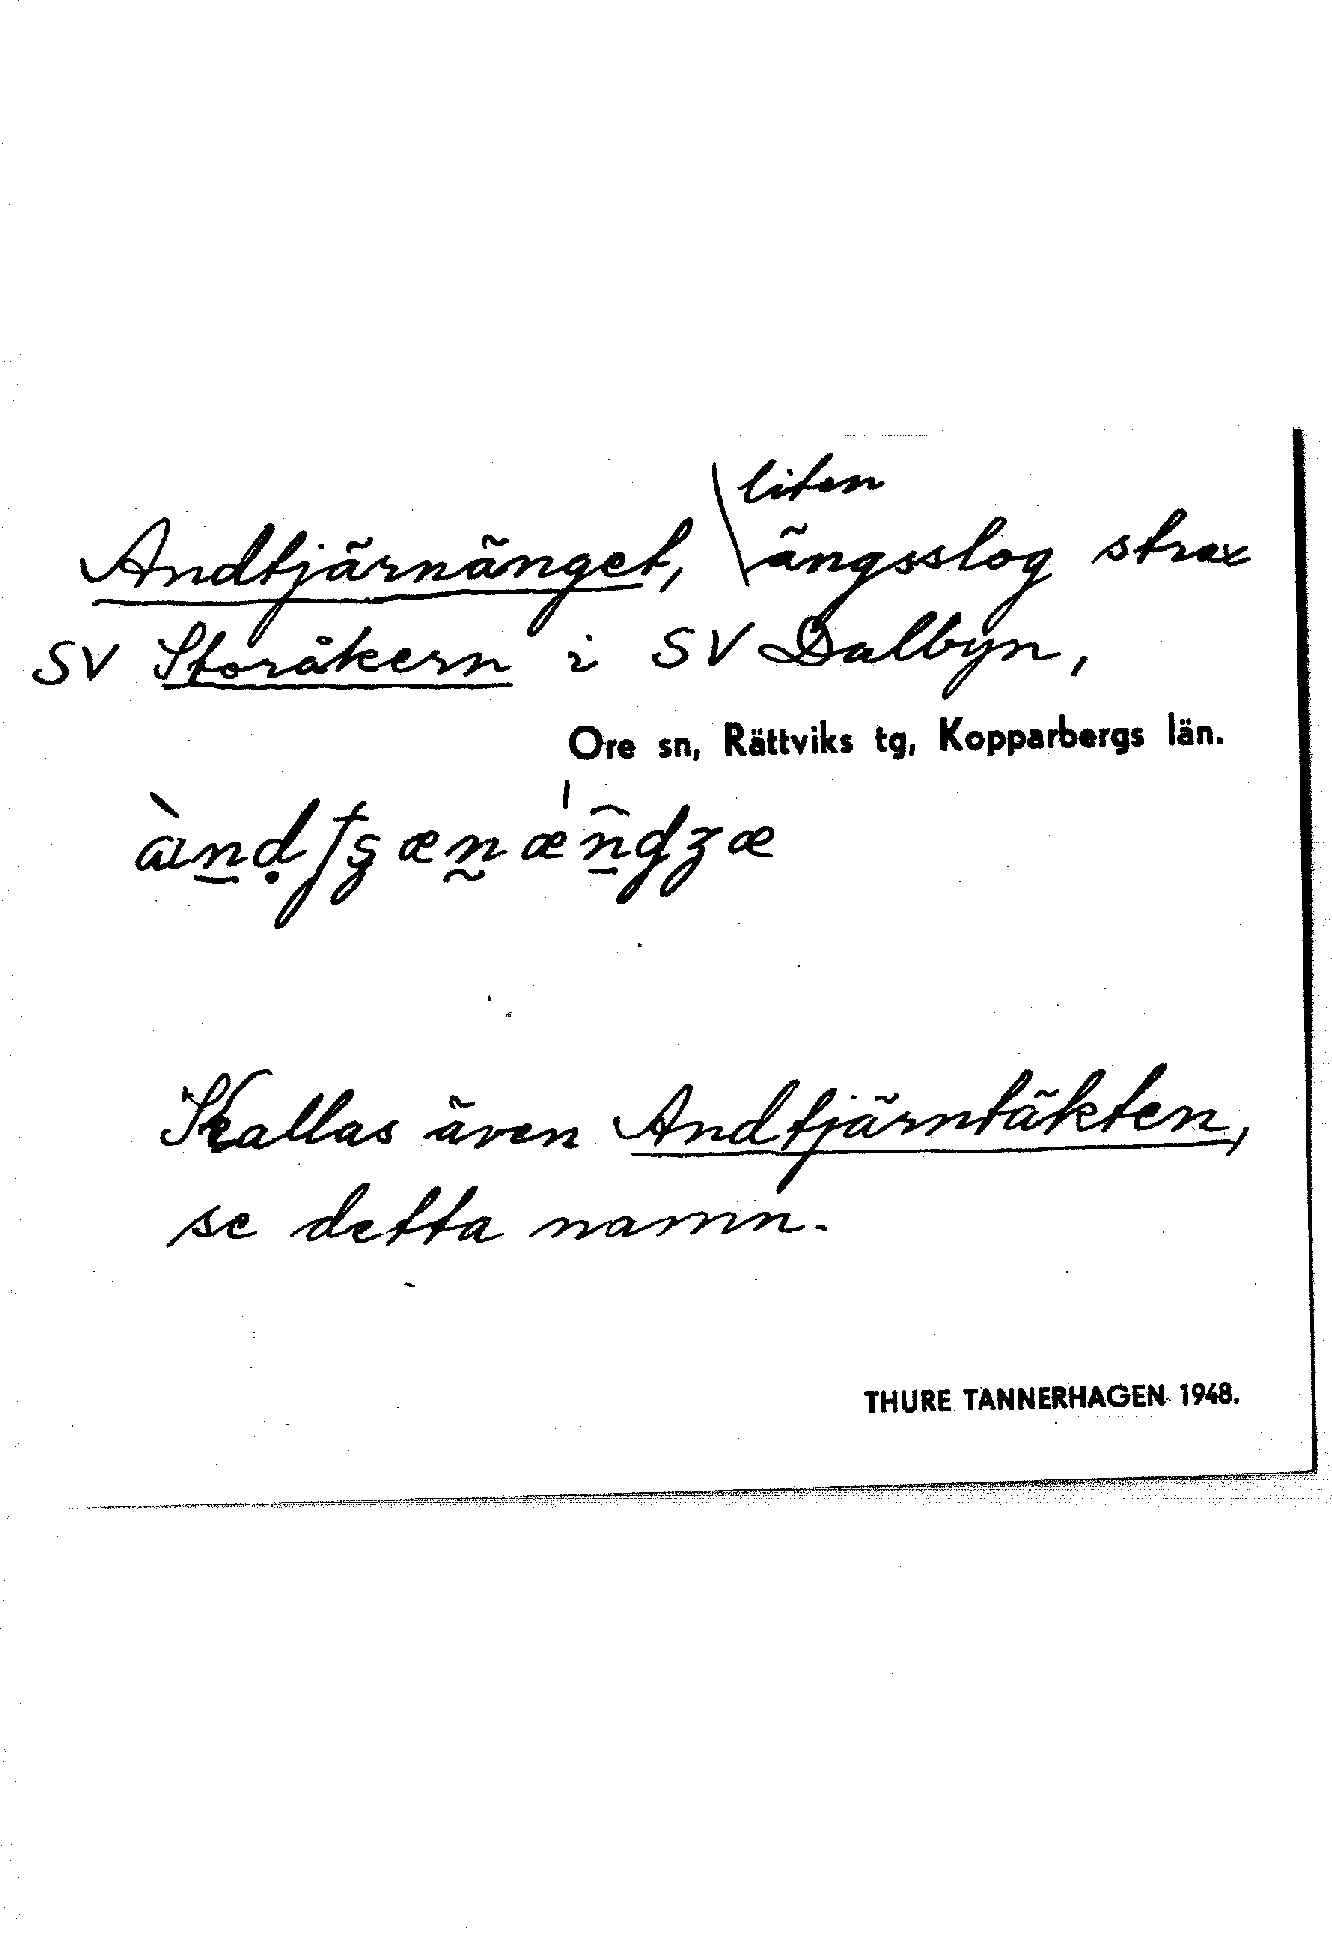 Andtjärnänget, liten ängsslog strax
SV Storåkern i SV Dalbyn,
Ore sn, Rättviks tg, Kopparbergs län.
Kallas även Andtjärntäkten,
se detta namn.
THURE TANNERHAGEN 1948.